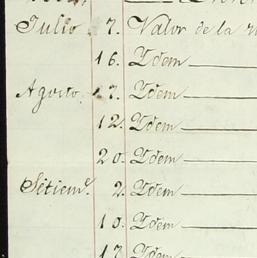 Julio 7. Valor de la
16. Ydem
Agosto 7. Ydem
12. Ydem
20. Ydem
Setieme. 2. Ydem
10. Ydem
17. Ydem